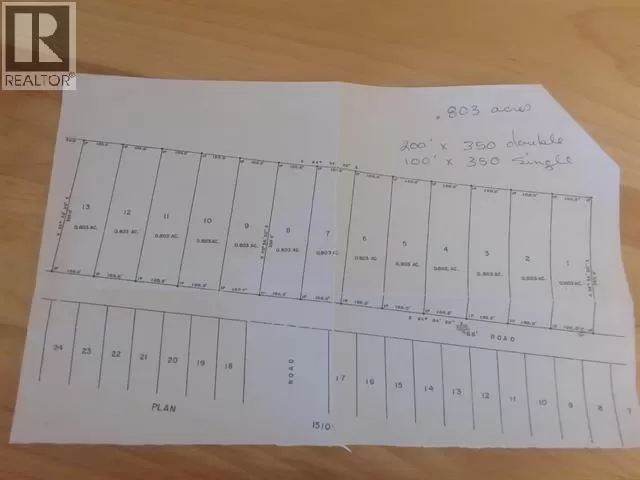 R
REALTOR®
.803 acres
200' x 350 double
100' x 350 single
13 12 11 10 9 8 7 6 5 4 3 2 1
0.803 AC. 0.803 AC. 0.803 AC. 0.803 AC. 0.803 AC. 0.803 AC. 0.803 AC. 0.803 AC. 0.803 AC. 0.803 AC. 0.803 AC. 0.803 AC. 0.803 AC.
100.0' 100.0' 100.0' 100.0' 100.0' 100.0' 100.0' 100.0' 100.0' 100.0'
66'
ROAD
24 23 22 21 20 19 18
ROAD
17 16 15 14 13 12 11 10 9 8 7
PLAN
1510